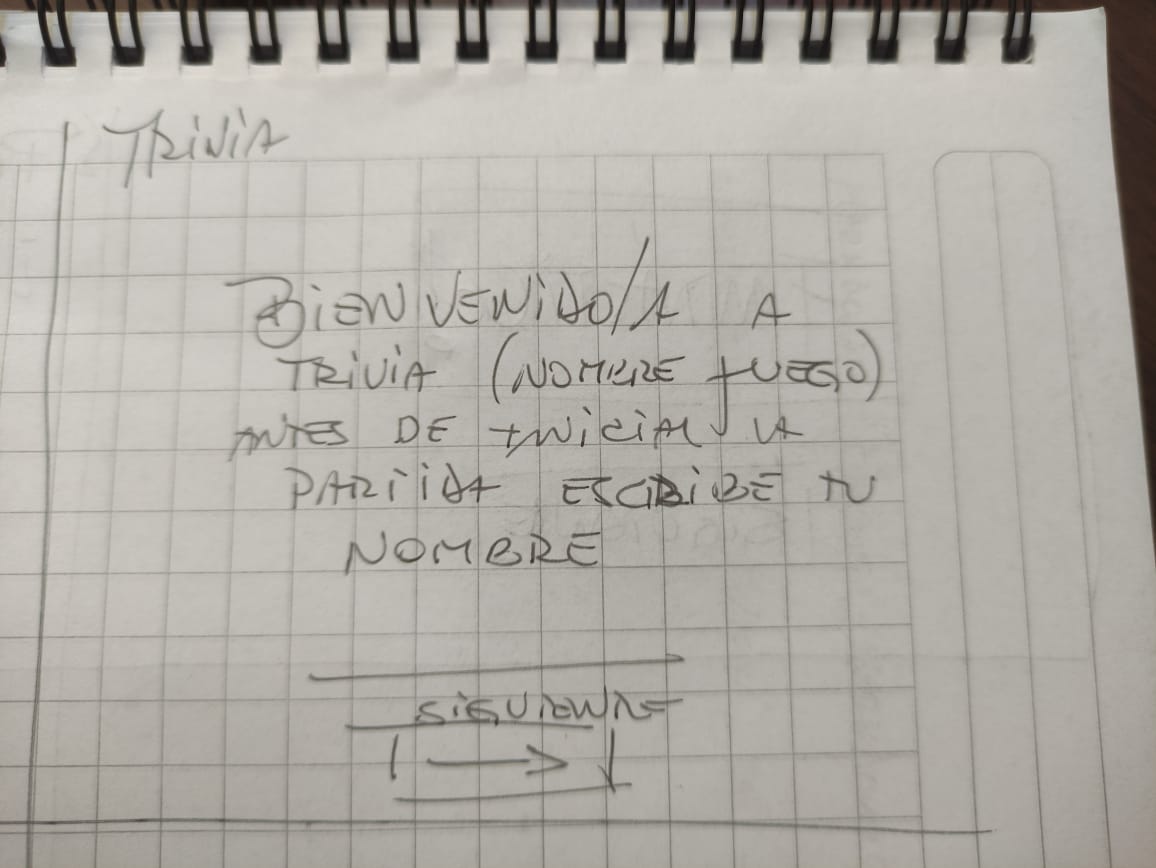 TRIVIA
BIENVENIDO/A A
TRIVIA (NOMBRE JUEGO)
ANTES DE INICIAR LA
PARTIDA ESCRIBE TU
NOMBRE
SIGUIENTE